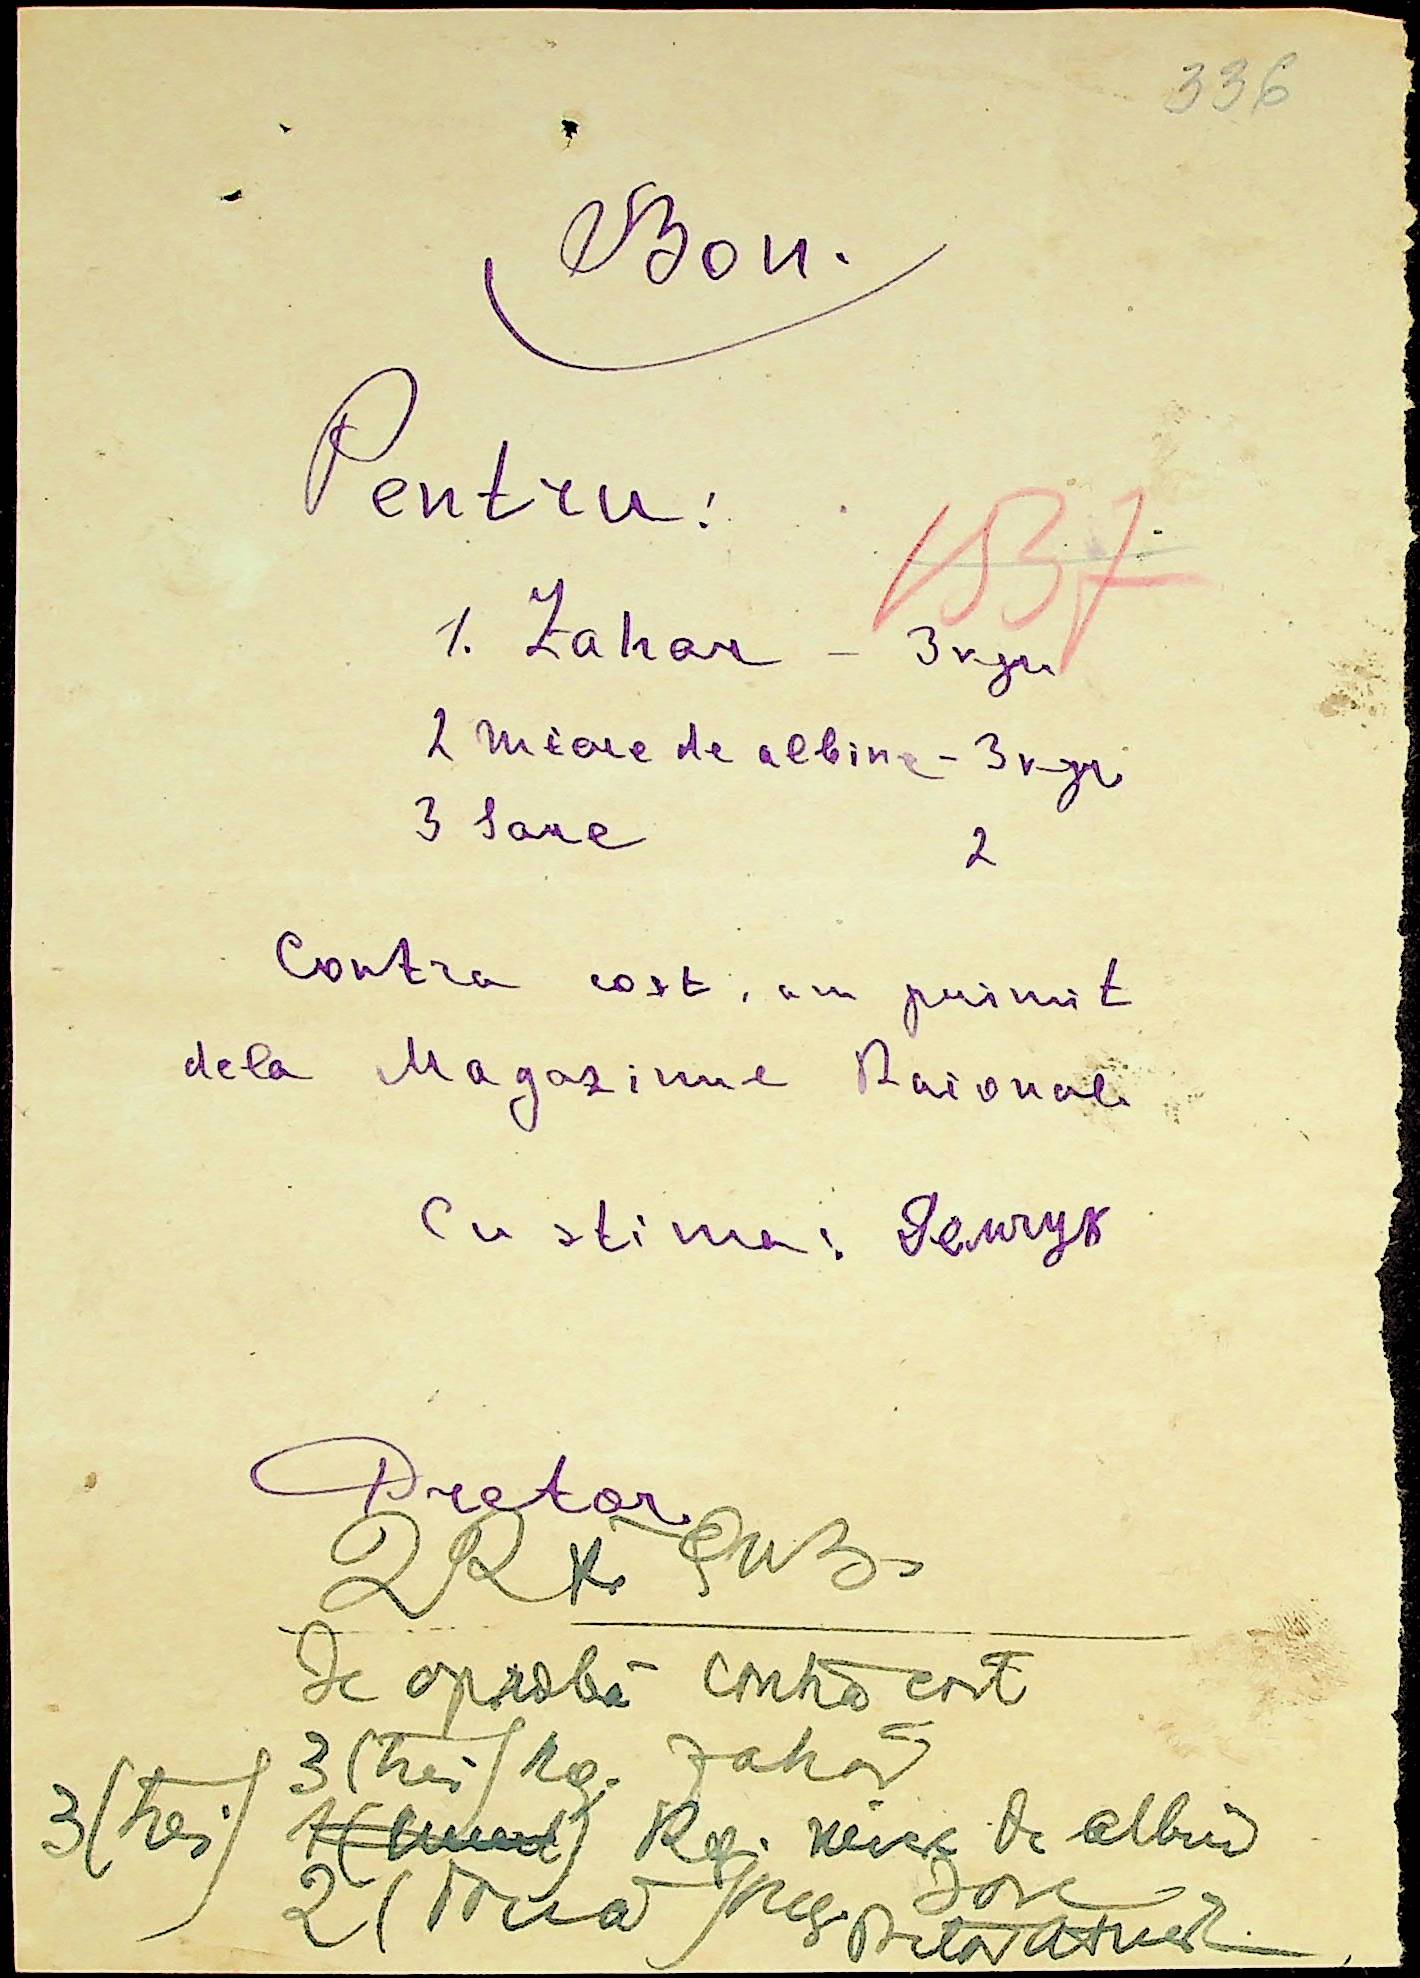 336
Bon.
Pentru:
1537
1. Zahar - 3 kgr
2 Miere de albine - 3 kgr
3 Sare 2
Contra cost, am primit
dela Magazinul Raional
Cu stima:
Pretor
Se aprobă contra cost
3 (trei) kg. zahar
3 (trei) Kg. miere de albine
2 (două) kg. sare
Pretor